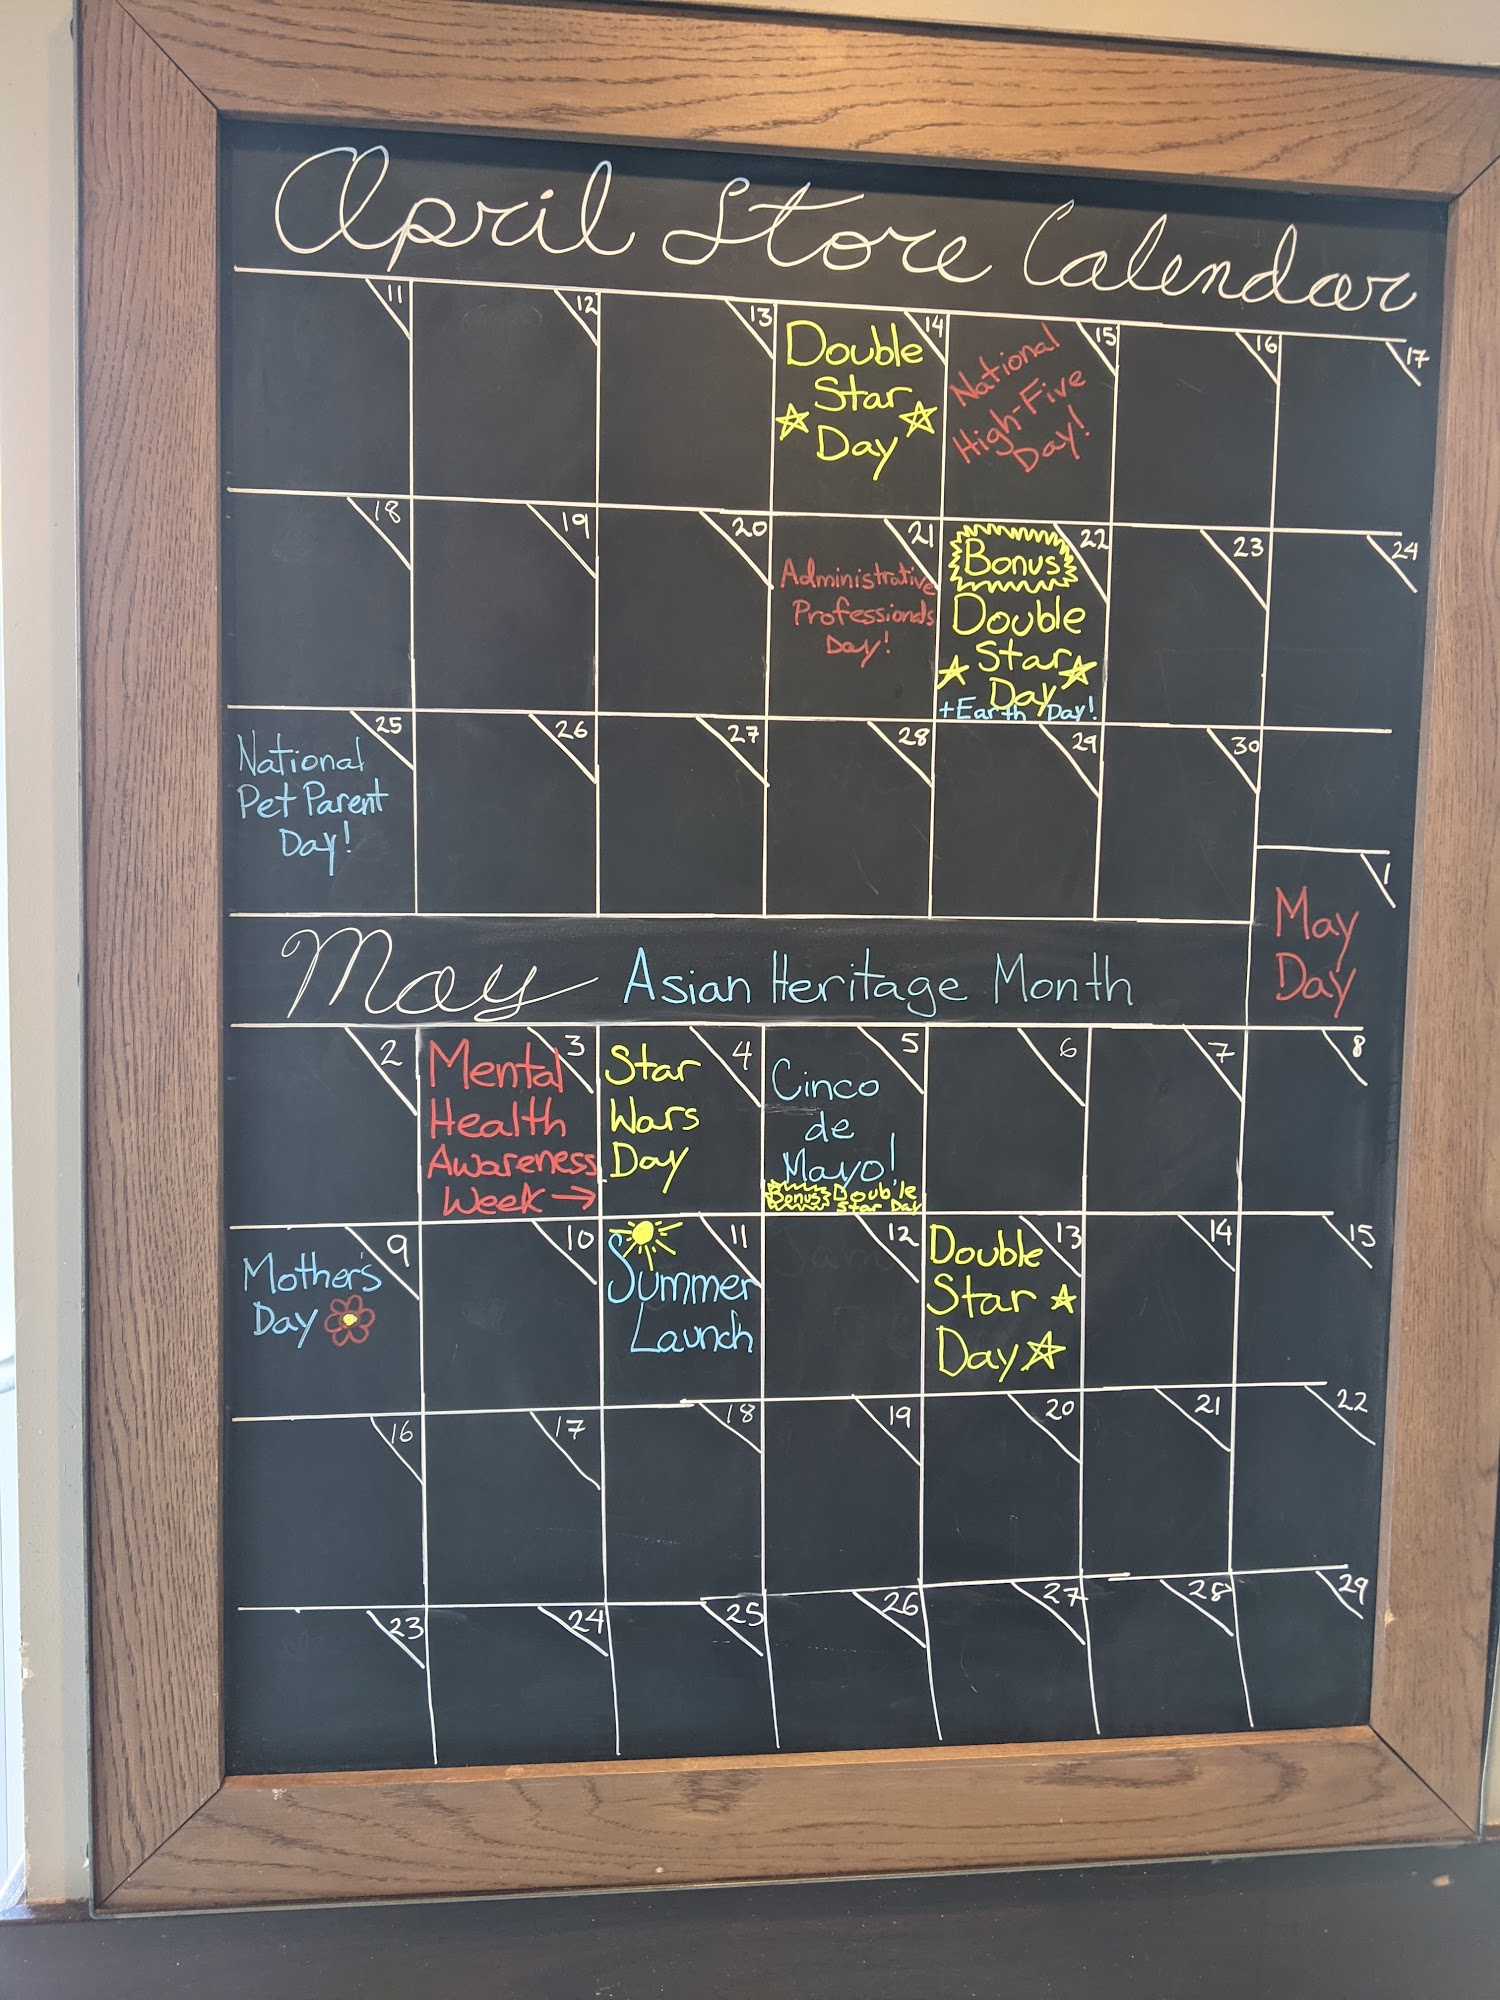 April Store Calendar
11 12 13 14 15 16 17
Double
Star
Day
National
High-Five
Day!
18 19 20 21 22 23 24
Administrative
Professionals
Day!
Bonus
Double
Star
Day
+Earth Day!
25 26 27 28 29 30
National
Pet Parent
Day!
1
May
Day
May Asian Heritage Month
2 3 4 5 6 7 8
Mental
Health
Awareness
Week →
Star
Wars
Day
Cinco
de
Mayo!
Bonus Double
Star Day
9 10 11 12 13 14 15
Mother's
Day
Summer
Launch
Double
Star
Day
16 17 18 19 20 21 22
23 24 25 26 27 28 29